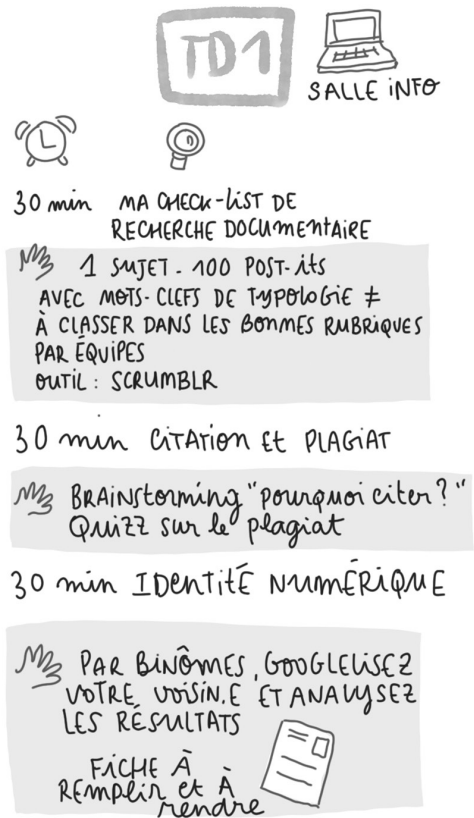 TD1
SALLE iNFO
30 min MA CHECK-LiST DE
RECHERCHE DOCUMENTAiRE
1 SUJET - 100 POST-its
AVEC MOTS-CLEFS DE TYPOLOGiE ≠
À CLASSER DANS LES BONNES RUBRiQUES
PAR ÉQUiPES
OUTiL : SCRUMBLR
30 min CiTATiON Et PLAGiAT
BRAiNStorming "pourquoi citer ?"
QUiZZ sur le plagiat
30 min IDENTiTÉ NUMÉRiQUE
PAR BiNÔMES, GOOGLELiSEZ
VOTRE VOiSiN.E ET ANALYSEZ
LES RÉSULTATS
FiCHE À
REMPLiR et À
rendre